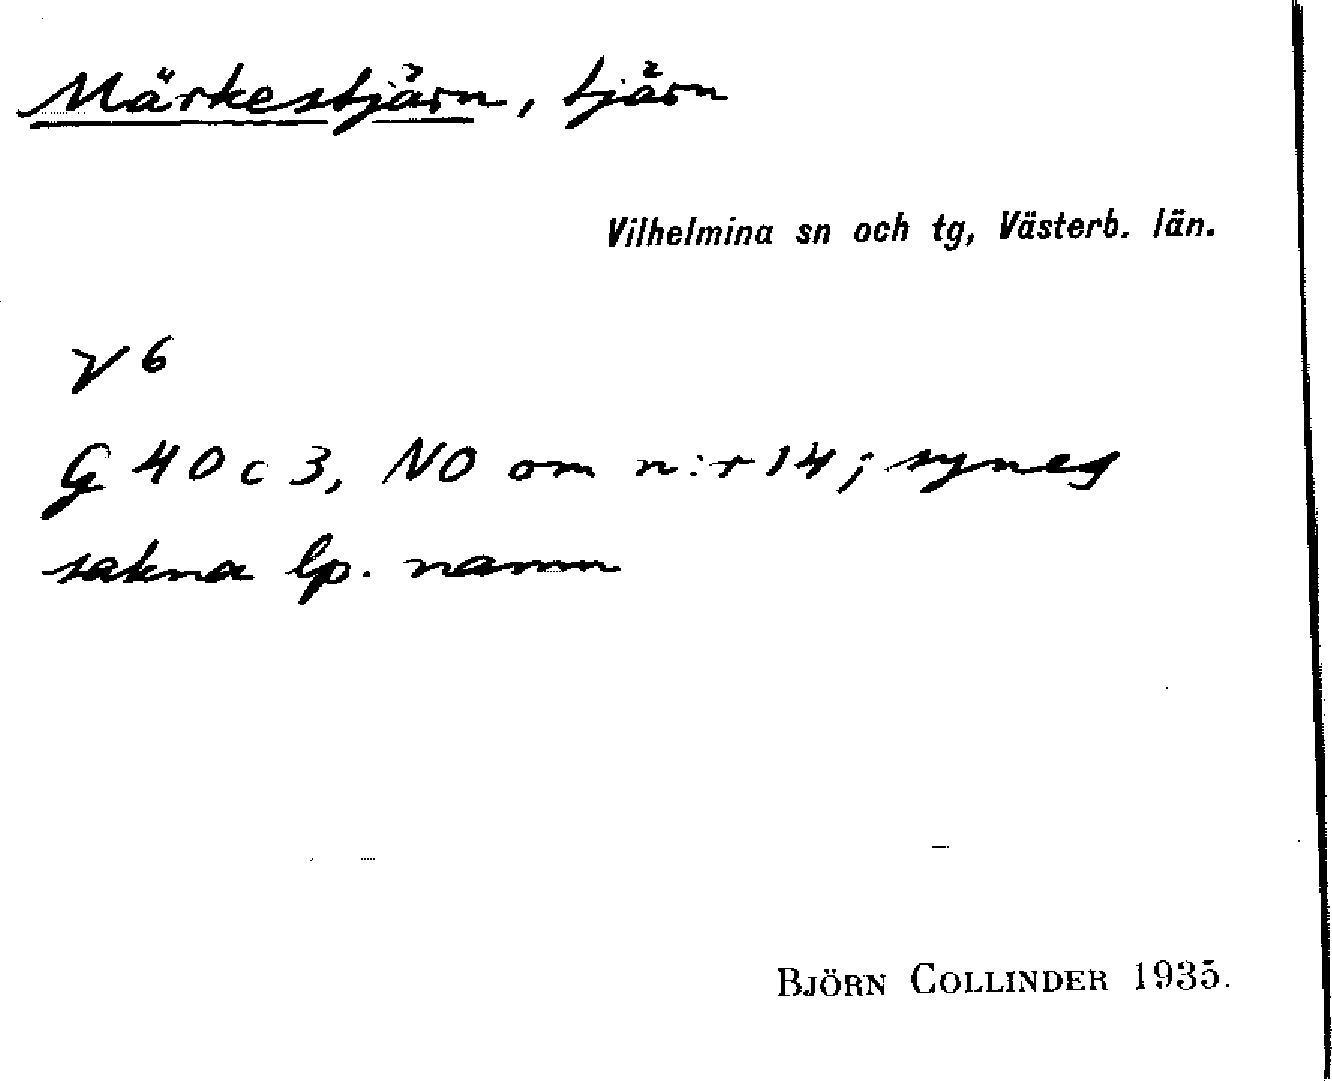 Märkestjärn, tjärn
Vilhelmina sn och tg, Västerb. län.
V 6
G 40 c 3, NO om n:r 14; synes
sakna lp. namn
BJÖRN COLLINDER 1935.